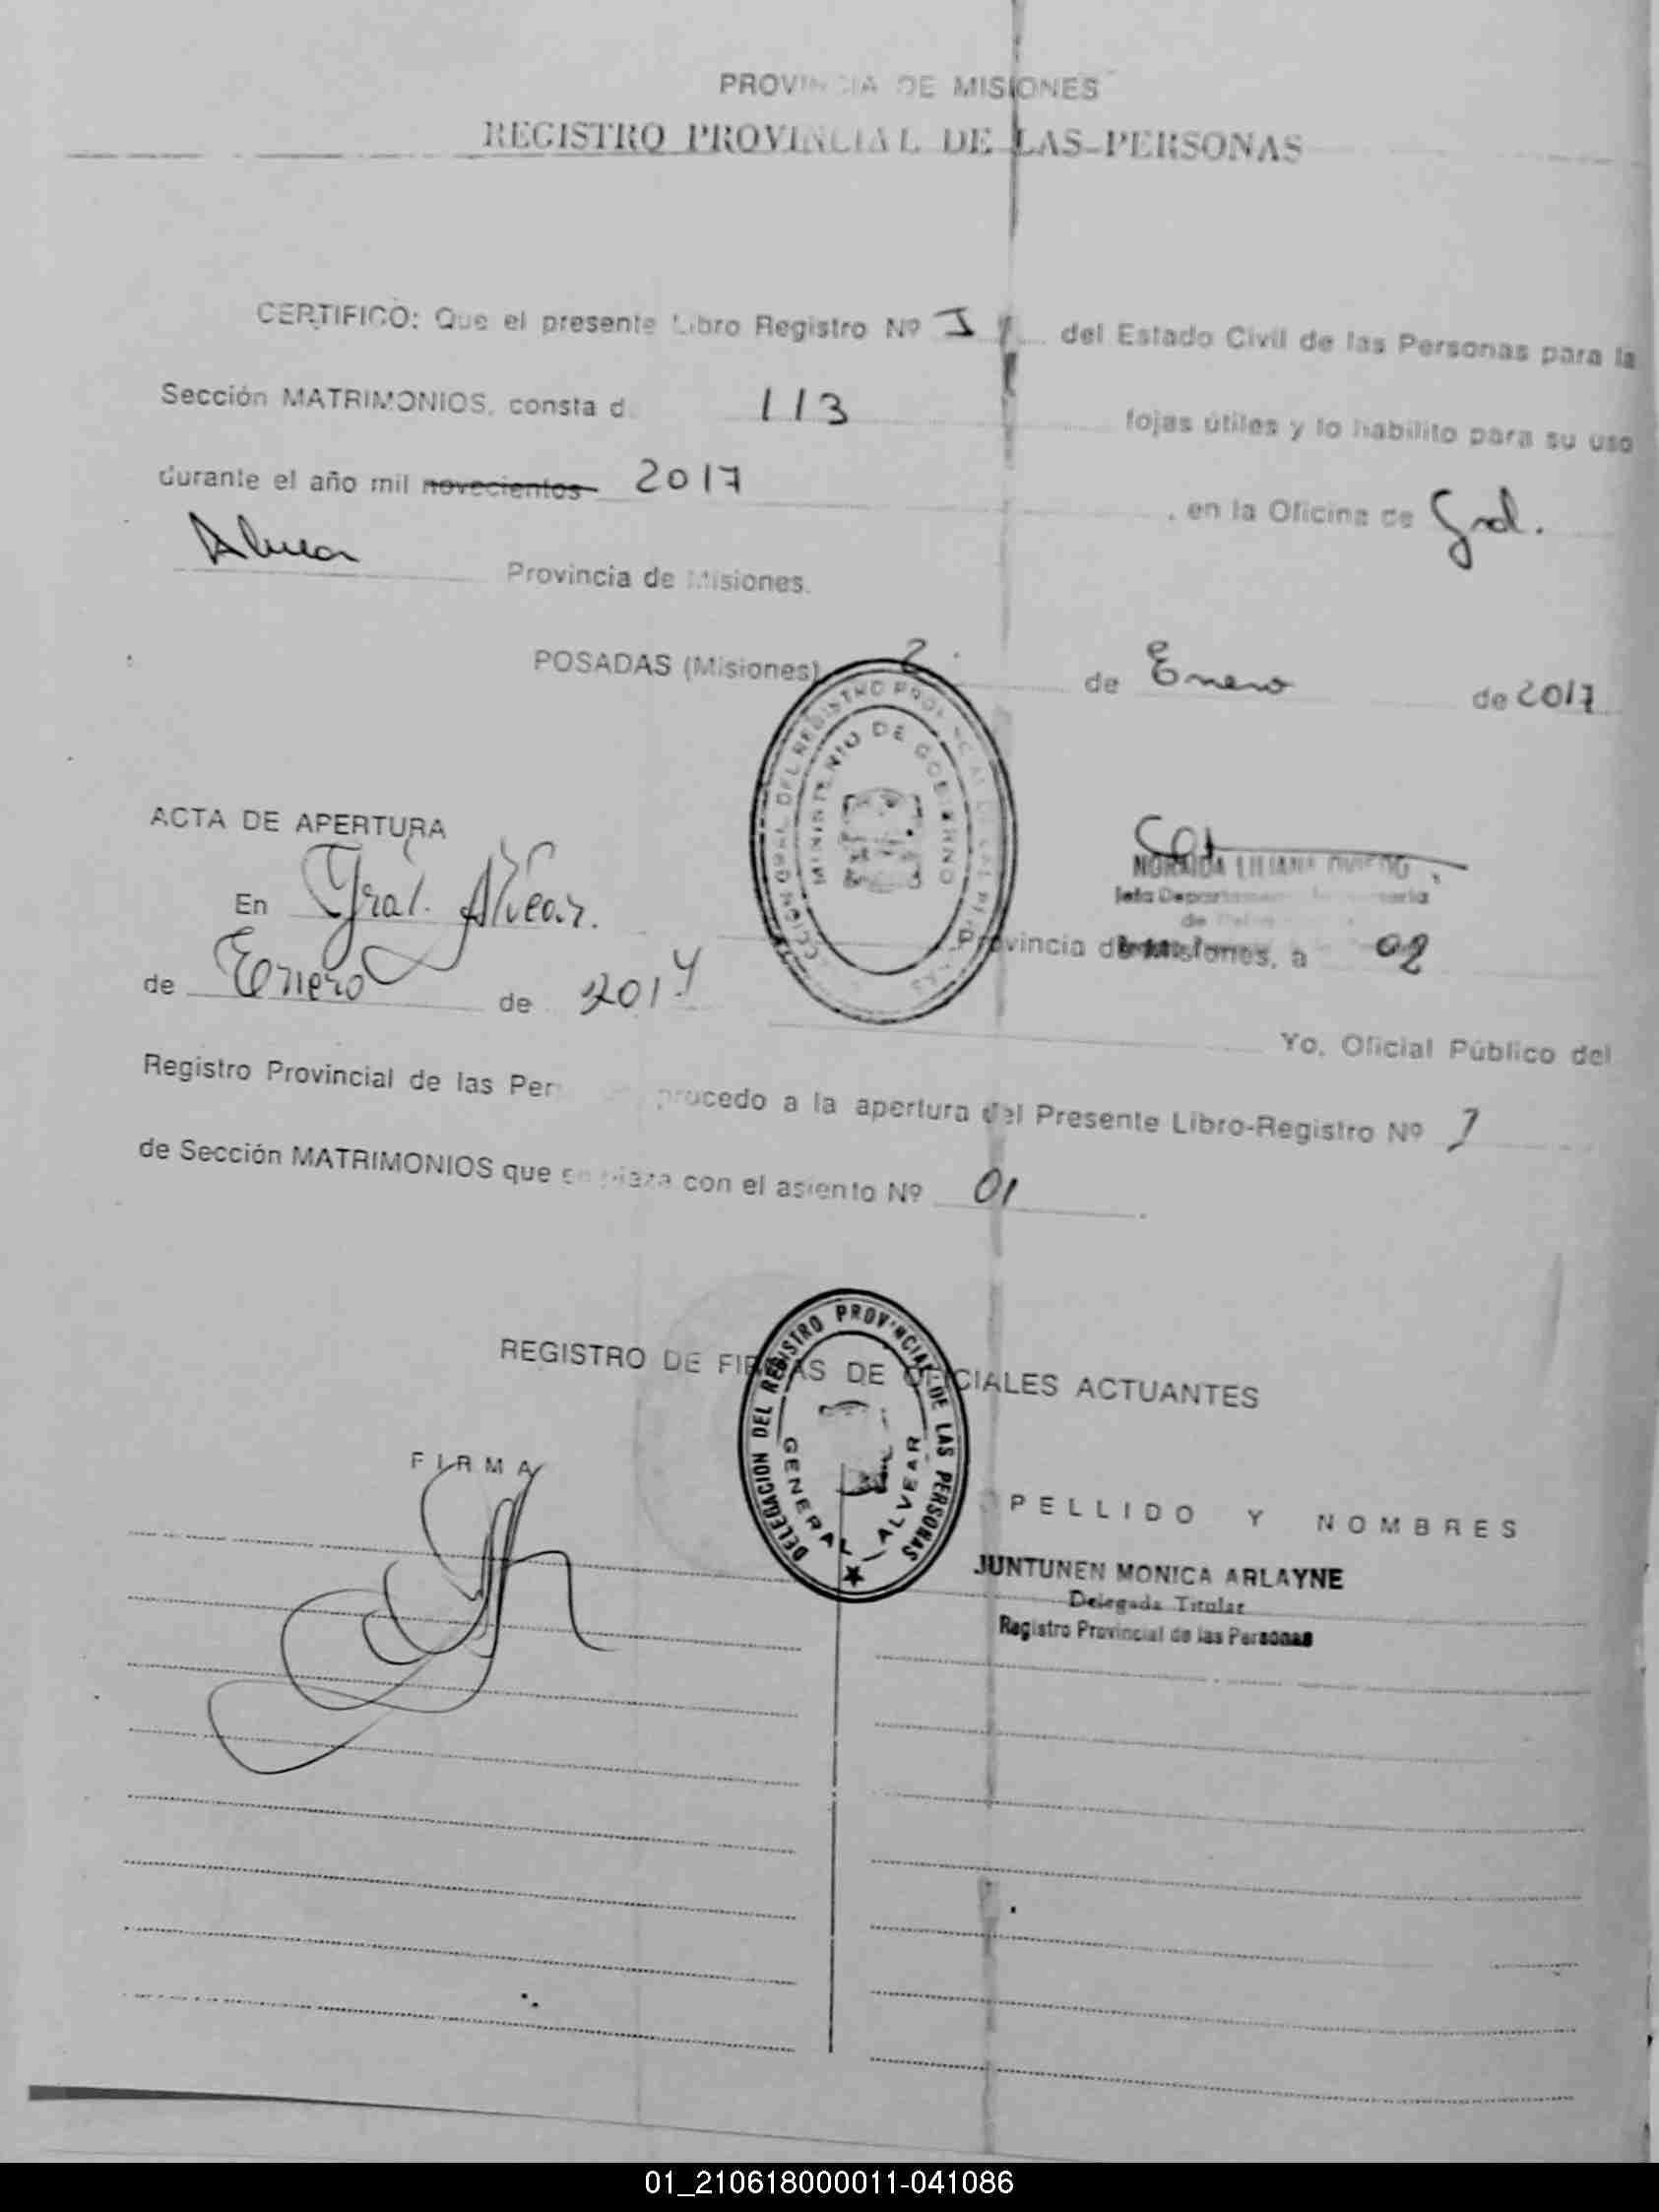 PROVINCIA DE MISIONES
REGISTRO PROVINCIAL DE LAS PERSONAS
CERTIFICO: Que el presente Libro Registro Nº I del Estado Civil de las Personas para la
Sección MATRIMONIOS, consta d 113 fojas útiles y lo habilito para su uso
durante el año mil novecientos 2017, en la Oficina de Gral.
Alvear Provincia de Misiones.
POSADAS (Misiones) 2 de Enero de 2017
DEL REGISTRO PROVINCIAL
MINISTERIO DE GOBIERNO
NORAIDA LILIANA OVIEDO
ACTA DE APERTURA
En Gral. Alvear. Provincia de Misiones, a 02
de Enero de 2017 Yo, Oficial Público del
Registro Provincial de las Per procedo a la apertura del Presente Libro-Registro Nº 1
de Sección MATRIMONIOS que con el asiento Nº 01
REGISTRO DE FIRMAS DE OFICIALES ACTUANTES
DELEGACION DEL REGISTRO PROVINCIAL DE LAS PERSONAS
GENERAL ALVEAR
FIRMA
PELLIDO Y NOMBRES
JUNTUNEN MONICA ARLAYNE
Delegada Titular
Registro Provincial de las Personas
01_210618000011-041086